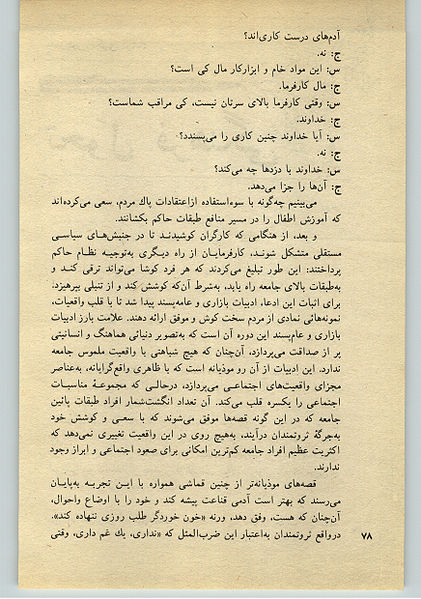 آدم‌های درست کاری‌اند؟
ج: نه.
س: این مواد خام و ابزارکار مال کی است؟
ج: مال کارفرما.
س: وقتی کارفرما بالای سرتان نیست، کی مراقب شماست؟
ج: خداوند.
س: آیا خداوند چنین کاری را می‌پسندد؟
ج: نه.
س: خداوند با دزدها چه می‌کند؟
ج: آن‌ها را جزا می‌دهد.
می‌بینیم چه‌گونه با سوءاستفاده ازاعتقادات پاك مردم، سعی می‌کرده‌اند
که آموزش اطفال را در مسیر منافع طبقات حاکم بکشانند.
و بعد، از هنگامی که کارگران کوشیدند تا در جنبش‌های سیاسی
مستقلی متشکل شوند، کارفرمایان از راه دیگری به‌توجیه نظام حاکم
پرداختند: این طور تبلیغ می‌کردند که هر فرد کوشا می‌تواند ترقی کند و
به‌طبقات بالای جامعه راه یابد، به‌شرط آن‌که کوشش کند و از تنبلی بپرهیزد.
برای اثبات این ادعا، ادبیات بازاری و عامه‌پسند پیدا شد تا با قلب واقعیات،
نمونه‌هائی نمادی از مردم سخت کوش و موفق ارائه دهند. علامت بارز ادبیات
بازاری و عام‌پسند این دوره آن است که به‌تصویر دنیائی هماهنگ و انسانیتی
پر از صداقت می‌پردازد، آن‌چنان که هیچ شباهتی با واقعیت ملموس جامعه
ندارد. این ادبیات از آن رو موذیانه است که با ظاهری واقع‌گرایانه، به‌عناصر
مجزای واقعیت‌های اجتماعی می‌پردازد، درحالی که مجموعهٔ مناسبات
اجتماعی را یکسره قلب می‌کند. آن تعداد انگشت‌شمار افراد طبقات پائین
جامعه که در این گونه قصه‌ها موفق می‌شوند که با سعی و کوشش خود
به‌جرگهٔ ثروتمندان درآیند، به‌هیچ روی در این واقعیت تغییری نمی‌دهد که
اکثریت عظیم افراد جامعه کم‌ترین امکانی برای صعود اجتماعی و ابراز وجود
ندارند.
قصه‌های موذیانه‌تر از چنین قماشی همواره با این تجربه به‌پایان
می‌رسند که بهتر است آدمی قناعت پیشه کند و خود را با اوضاع واحوال،
آن‌چنان که هست، وفق دهد، ورنه «خون خوردگر طلب روزی ننهاده کند».
درواقع ثروتمندان به‌اعتبار این ضرب‌المثل که «نداری، یك غم داری، وقتی
۷۸